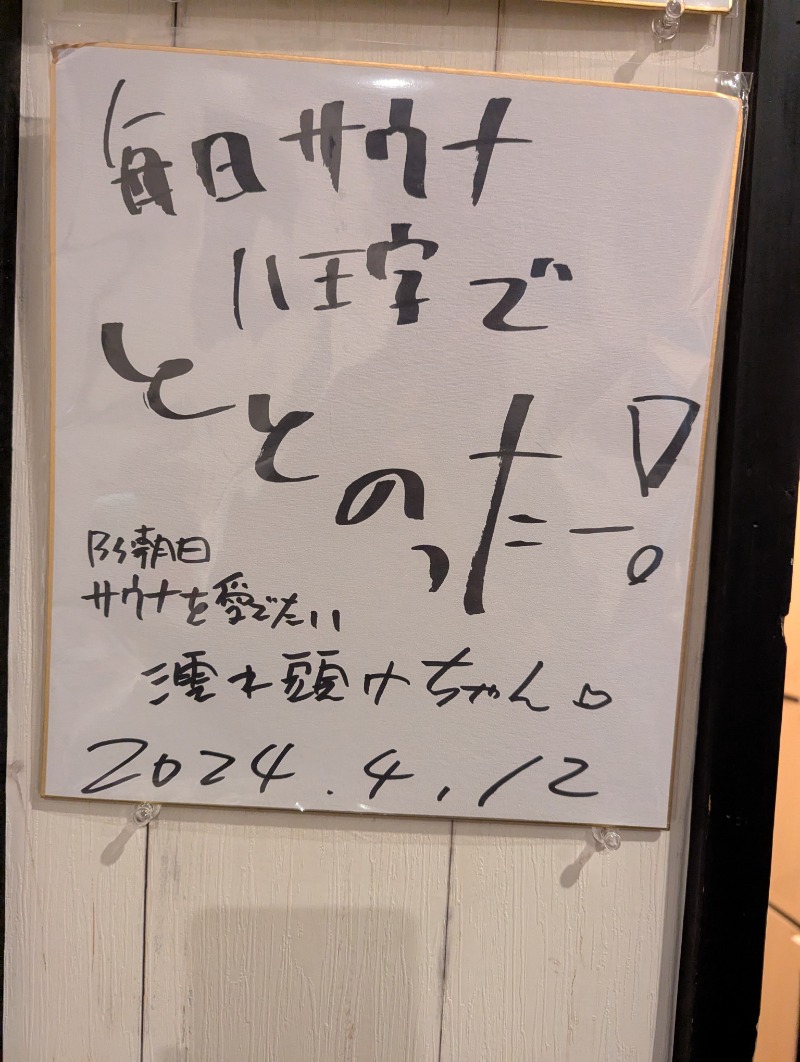 毎日サウナ
八王字で
ととのったー!
BS朝日
サウナを愛でたい
濡れ頭巾ちゃん
2024.4.12